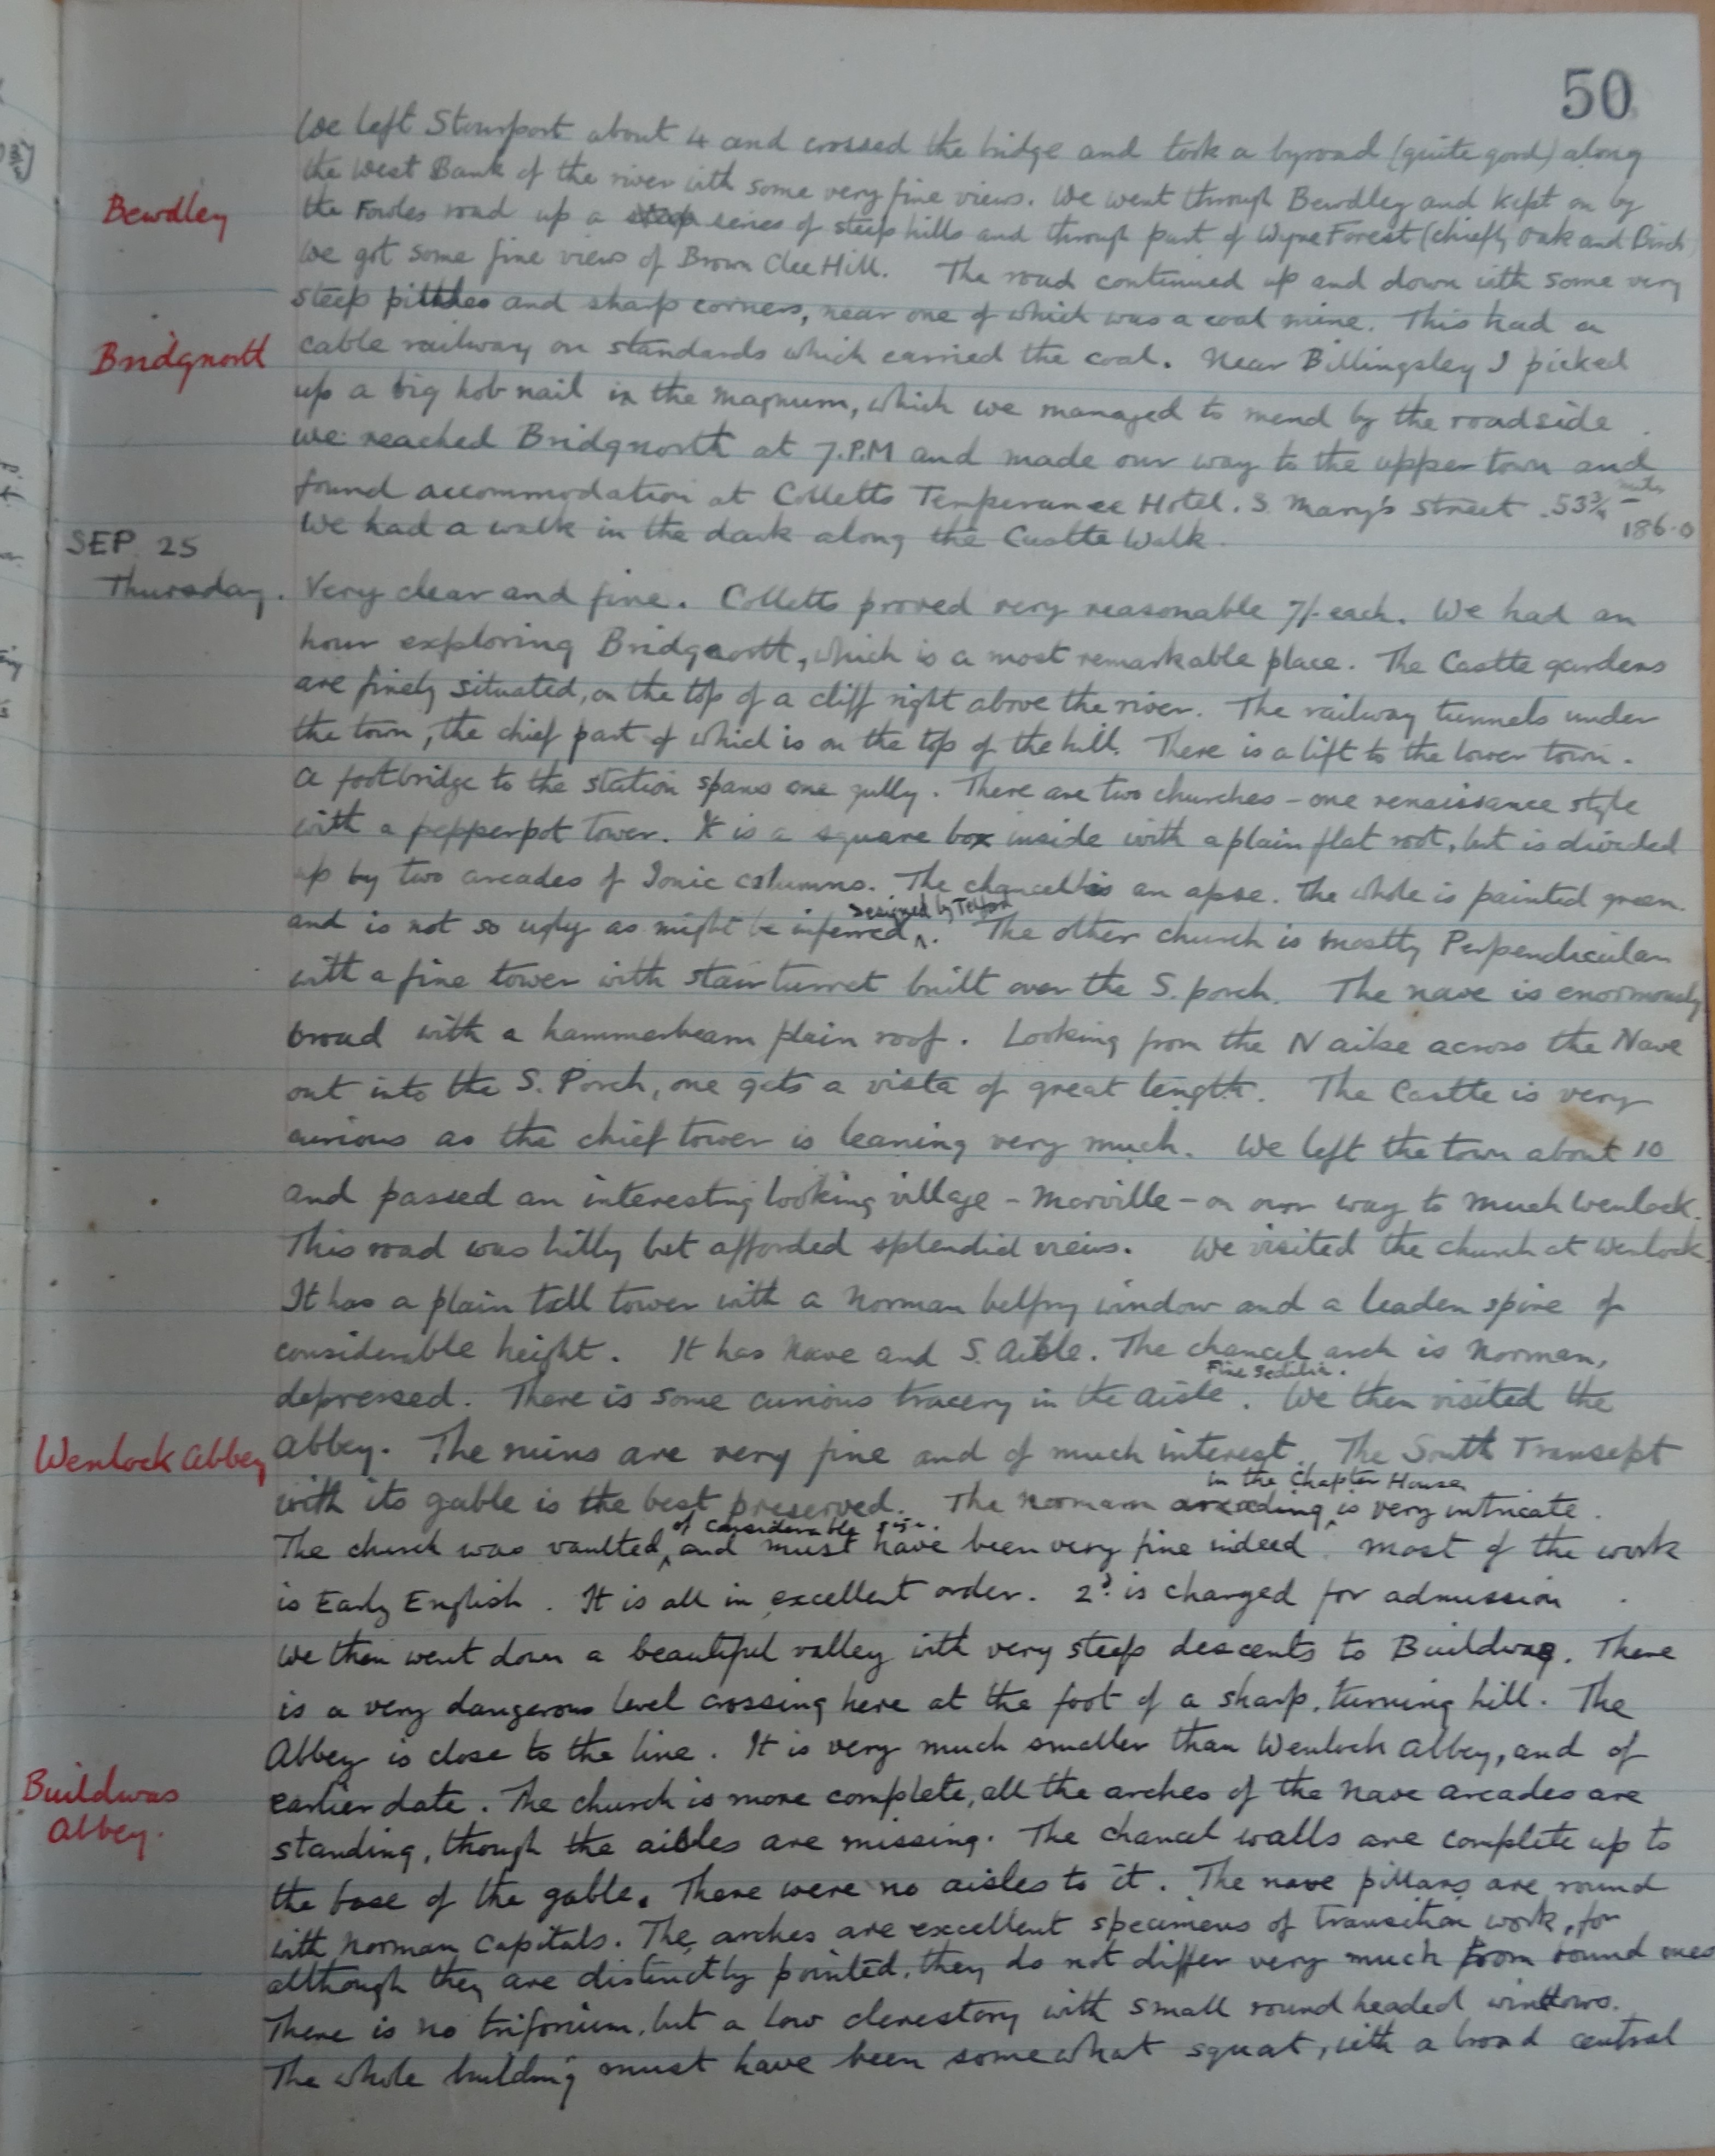 50
We left Stourport about 4 and crossed the bridge and took a byroad (quite good) along
the West Bank of the river with some very fine views. We went through Bewdley and kept on by
Bewdley
the road up a steep series of steep hills and through part of Wyre Forest (chiefly Oak and Birch)
We got some fine views of Brown Clee Hill. The road continued up and down with some very
steep pitches and sharp corners, near one of which was a coal mine. This had a
Bridgnorth
cable railway on standards which carried the coal. Near Billingsley I picked
up a big hob nail in the Magnum, which we managed to mend by the roadside.
We reached Bridgnorth at 7.P.M and made our way to the upper town and
found accommodation at Colletts Temperance Hotel. S. Mary's Street. 53¾ miles
186.0
We had a walk in the dark along the Castle Walk.
SEP. 25
Thursday. Very clear and fine. Colletts proved very reasonable 7/- each. We had an
hour exploring Bridgnorth, which is a most remarkable place. The Castle gardens
are finely situated, on the top of a cliff right above the river. The railway tunnels under
the town, the chief part of which is on the top of the hill. There is a lift to the lower town.
A footbridge to the station spans one gully. There are two churches – one renaissance style
with a pepperpot tower. It is a square box inside with a plain flat roof, but is divided
up by two arcades of Ionic columns. The chancel is an apse. The whole is painted green
Designed by Telford
and is not so ugly as might be inferred. The other church is mostly Perpendicular
with a fine tower with stair turret built over the S. porch. The nave is enormously
broad with a hammerbeam plain roof. Looking from the N aisle across the Nave
out into the S. Porch, one gets a vista of great length. The Castle is very
curious as the chief tower is leaning very much. We left the town about 10
and passed an interesting looking village – Morville – on our way to Much Wenlock.
This road was hilly but afforded splendid views. We visited the church at Wenlock.
It has a plain tall tower with a Norman belfry window and a leaden spire of
considerable height. It has Nave and S. Aisle. The chancel arch is Norman,
Fine Sedilia.
depressed. There is some curious tracery in the aisle. We then visited the
Wenlock Abbey
Abbey. The ruins are very fine and of much interest. The South Transept
in the Chapter House
with its gable is the best preserved. The Norman arcading is very intricate.
of considerable size.
The church was vaulted, and must have been very fine indeed. Most of the work
is Early English. It is all in excellent order. 2d. is charged for admission.
We then went down a beautiful valley with very steep descents to Buildwas. There
is a very dangerous level crossing here at the foot of a sharp, turning hill. The
Abbey is close to the line. It is very much smaller than Wenlock Abbey, and of
Buildwas
Abbey.
earlier date. The church is more complete, all the arches of the nave arcades are
standing, though the aisles are missing. The chancel walls are complete up to
the base of the gable. There were no aisles to it. The nave pillars are round
with Norman capitals. The arches are excellent specimens of transition work, for
although they are distinctly pointed, they do not differ very much from round ones
There is no triforium, but a low clerestory with small round headed windows.
The whole building must have been somewhat squat, with a broad central